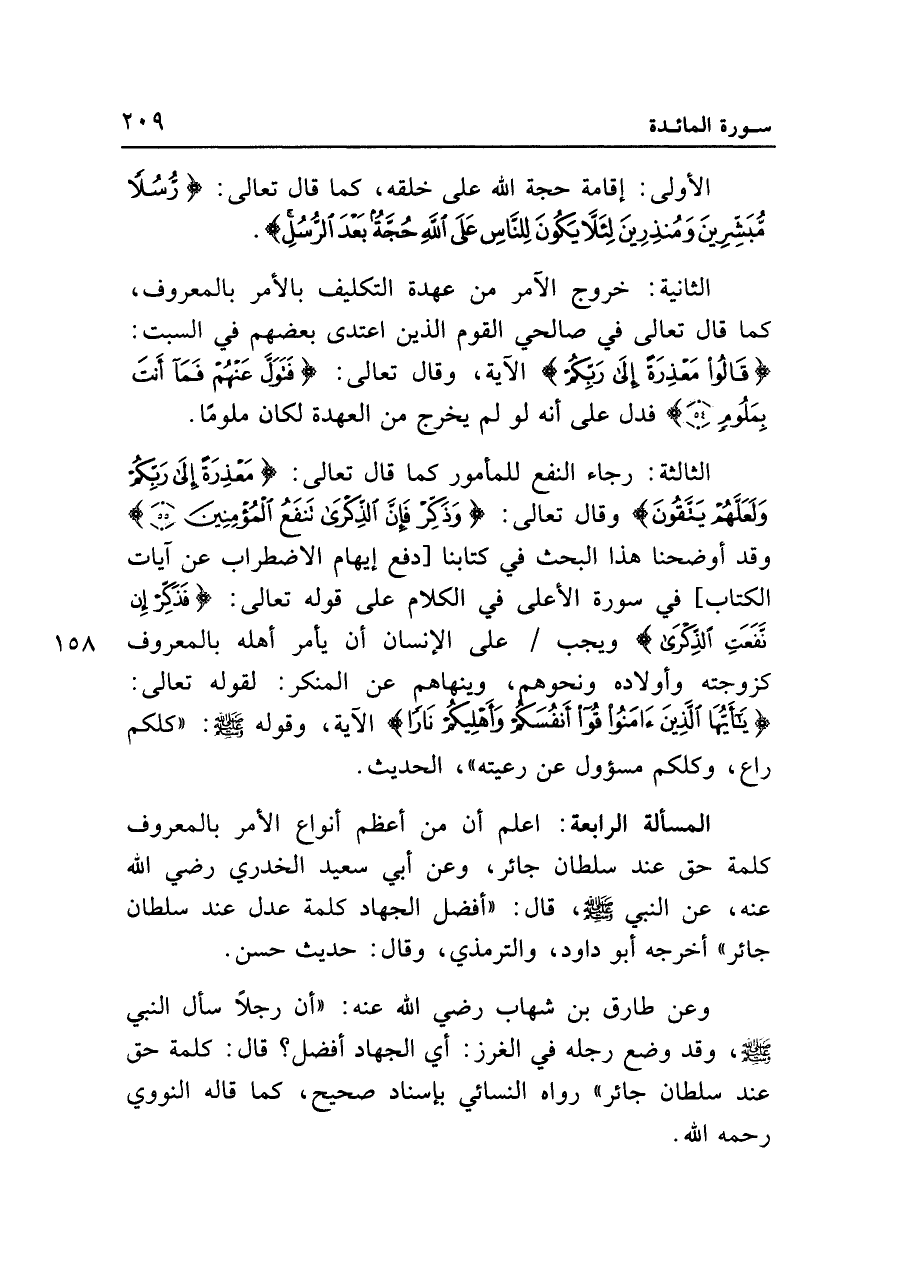 سورة المائدة ٢٠٩
الأولى: إقامة حجة الله على خلقه، كما قال تعالى: ﴿رُّسُلًا
مُّبَشِّرِينَ وَمُنذِرِينَ لِئَلَّا يَكُونَ لِلنَّاسِ عَلَى ٱللَّهِ حُجَّةٌۢ بَعْدَ ٱلرُّسُلِۚ﴾.
الثانية: خروج الآمر من عهدة التكليف بالأمر بالمعروف،
كما قال تعالى في صالحي القوم الذين اعتدى بعضهم في السبت:
﴿قَالُوا۟ مَعْذِرَةً إِلَىٰ رَبِّكُمْ﴾ الآية، وقال تعالى: ﴿فَتَوَلَّ عَنْهُمْ فَمَآ أَنتَ
بِمَلُومٍ ٥٤﴾ فدل على أنه لو لم يخرج من العهدة لكان ملومًا.
الثالثة: رجاء النفع للمأمور كما قال تعالى: ﴿مَعْذِرَةً إِلَىٰ رَبِّكُمْ
وَلَعَلَّهُمْ يَتَّقُونَ﴾ وقال تعالى: ﴿وَذَكِّرْ فَإِنَّ ٱلذِّكْرَىٰ تَنفَعُ ٱلْمُؤْمِنِينَ ٥٥﴾
وقد أوضحنا هذا البحث في كتابنا [دفع إيهام الاضطراب عن آيات
الكتاب] في سورة الأعلى في الكلام على قوله تعالى: ﴿فَذَكِّرْ إِن
نَّفَعَتِ ٱلذِّكْرَىٰ﴾ ويجب / على الإنسان أن يأمر أهله بالمعروف ١٥٨
كزوجته وأولاده ونحوهم، وينهاهم عن المنكر: لقوله تعالى:
﴿يَـٰٓأَيُّهَا ٱلَّذِينَ ءَامَنُوا۟ قُوٓا۟ أَنفُسَكُمْ وَأَهْلِيكُمْ نَارًا﴾ الآية، وقوله ﷺ: «كلكم
راع، وكلكم مسؤول عن رعيته»، الحديث.
المسألة الرابعة: اعلم أن من أعظم أنواع الأمر بالمعروف
كلمة حق عند سلطان جائر، وعن أبي سعيد الخدري رضي الله
عنه، عن النبي ﷺ، قال: «أفضل الجهاد كلمة عدل عند سلطان
جائر» أخرجه أبو داود، والترمذي، وقال: حديث حسن.
وعن طارق بن شهاب رضي الله عنه: «أن رجلاً سأل النبي
ﷺ، وقد وضع رجله في الغرز: أي الجهاد أفضل؟ قال: كلمة حق
عند سلطان جائر» رواه النسائي بإسناد صحيح، كما قاله النووي
رحمه الله.